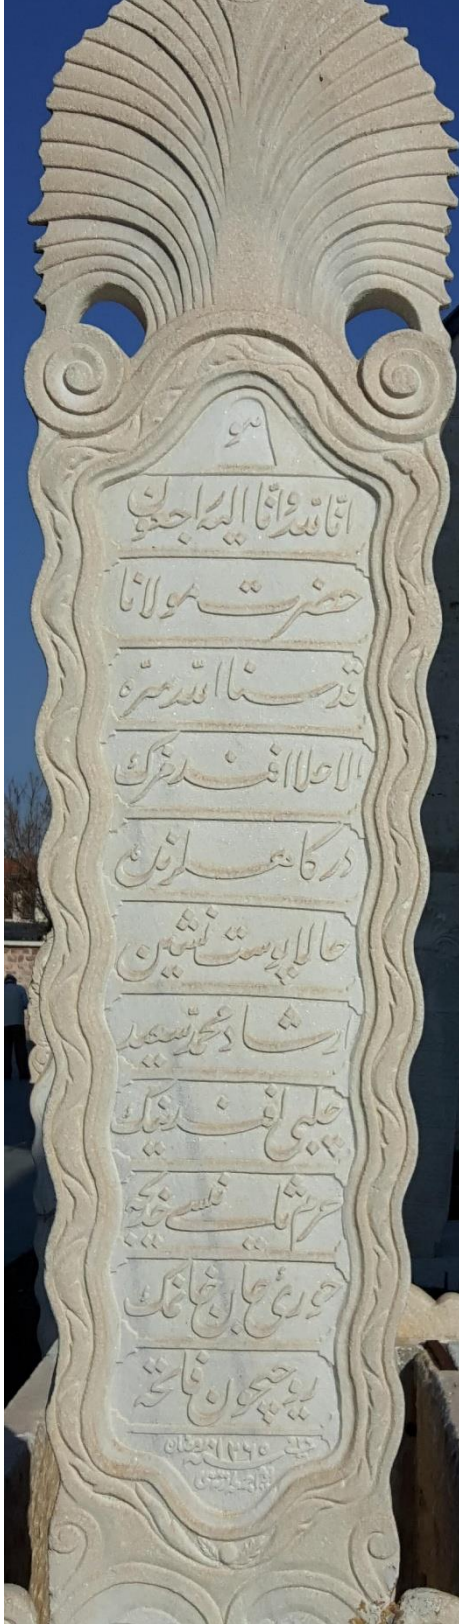 هو
انّا لله وانّا اليه راجعون
حضرت مولانا
قدسنا الله بسرّه
الاعلا افندمزك
دركاه
حالا پوست نشين
ارشاد محمّد سعيد
چلبي افندينك
حرم ثانيسي خديجه
حوري جان خانمك
روحيچون فاتحه
١٢٦٥ رمضان